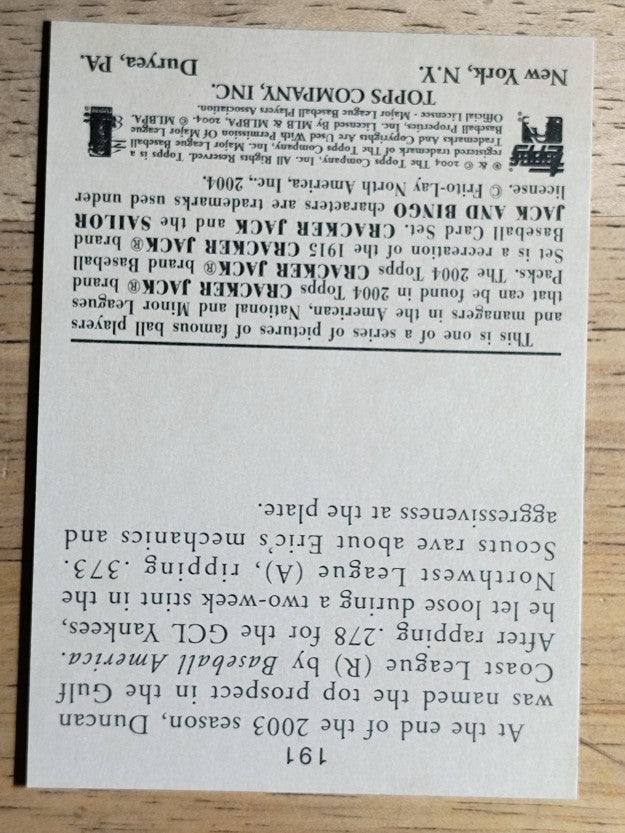 191
At the end of the 2003 season, Duncan
was named the top prospect in the Gulf
Coast League (R) by Baseball America.
After rapping .278 for the GCL Yankees,
he let loose during a two-week stint in the
Northwest League (A), ripping .373.
Scouts rave about Eric's mechanics and
aggressiveness at the plate.
This is one of a series of pictures of famous ball players
and managers in the American, National and Minor Leagues
that can be found in 2004 Topps CRACKER JACK® brand
Packs. The 2004 Topps CRACKER JACK® brand Baseball
Set is a recreation of the 1915 CRACKER JACK® brand
Baseball Card Set. CRACKER JACK and the SAILOR
JACK AND BINGO characters are trademarks used under
license. © Frito-Lay North America, Inc., 2004.
® & © 2004 The Topps Company, Inc. All Rights Reserved. Topps is a
registered trademark of The Topps Company, Inc. Major League Baseball
Trademarks And Copyrights Are Used With Permission Of Major League
Baseball Properties, Inc. Licensed By MLB & MLBPA. 2004. © MLBPA.
Official Licensee - Major League Baseball Players Association.
Topps
TOPPS COMPANY, INC.
New York, N.Y. Duryea, PA.